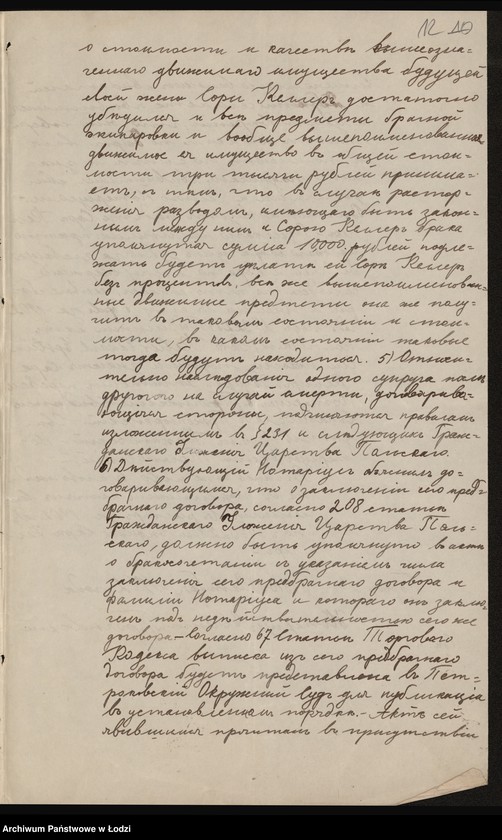 12
о стоимости и качествѣ вышеозна-
ченнаго движимаго имущества будущей
своей жены Соры Келлеръ достаточно
убѣдился и всѣ предметы брачной
экипировки и вообще вышепоименованное
движимое ея имущество въ общей стои-
мости три тысячи рублей принима-
етъ, съ тѣмъ, что въ случаѣ растор-
женія разводомъ, имѣющаго быть закон-
нымъ между нимъ и Сорою Келлеръ брака
упомянутая сумма 10,000 рублей подле-
жать будетъ уплатѣ ей Сорѣ Келлеръ
безъ процентовъ, всѣ же вышепоименован-
ные движимые предметы она же полу-
читъ въ таковомъ состояніи и стои-
мости, въ какомъ состояніи таковые
тогда будутъ находиться. 5) Относи-
тельно наслѣдованія одного супруга послѣ
другого на случай смерти, договарива-
ющіяся стороны, подчиняются правиламъ
изложеннымъ въ § 231 и слѣдующихъ Граж-
данскаго Уложенія Царства Польскаго.
6) Дѣйствующій Нотаріусъ объяснилъ до-
говаривающимся, что о заключеніи сего пред-
брачнаго договора, согласно 208 статьи
Гражданскаго Уложенія Царства Поль-
скаго, должно быть упомянуто въ актѣ
о бракосочетаніи съ указаніемъ числа
заключенія сего предбрачнаго договора и
фамиліи Нотаріуса у котораго онъ заклю-
ченъ подъ недѣйствительностью сего же
договора. – Согласно 67 Статьи Торговаго
Кодекса выписка изъ сего предбрачнаго
договора будетъ представлена въ Пет-
роковскій Окружный Судъ для публикаціи
въ установленномъ порядкѣ. – Актъ сей
явившимся прочтенъ въ присутствіи
Archiwum Państwowe w Łodzi